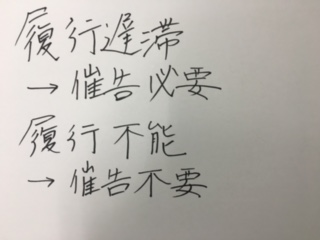 履行遅滞
→ 催告必要
履行不能
→ 催告不要